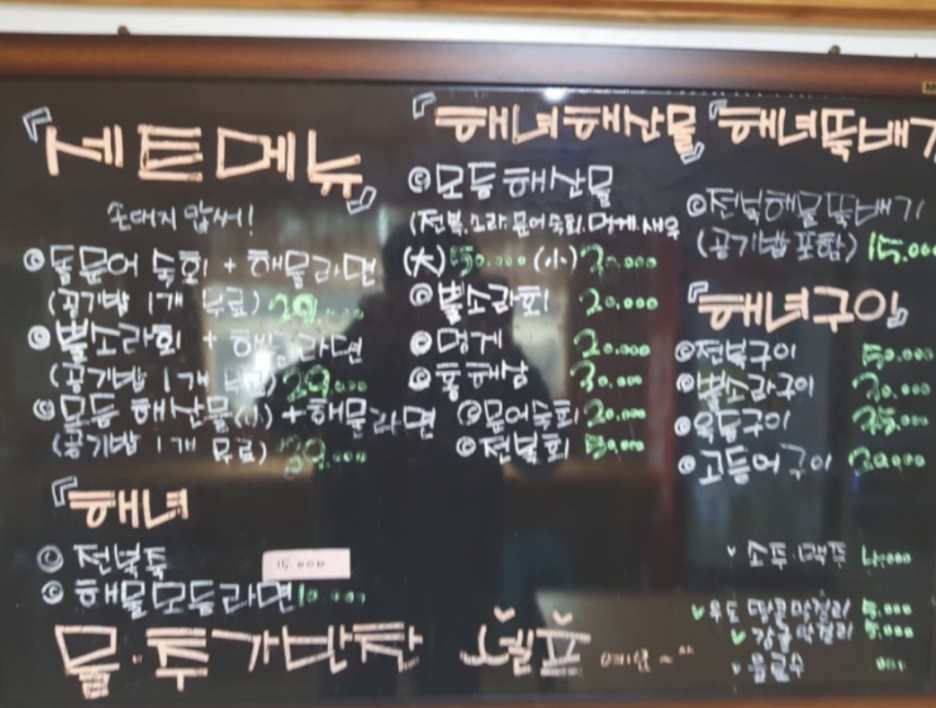 『세트메뉴』
손대지 맙써!
◎ 돌문어 숙회 + 해물라면
(공기밥 1개 무료) 29.000
◎ 뿔소라회 + 해물라면
(공기밥 1개 무료) 29.000
◎ 모듬 해산물(小) + 해물라면
(공기밥 1개 무료) 39.000
『해녀
◎ 전복죽 15.000
◎ 해물모듬라면 10.000
『해녀해산물』
◎ 모듬해산물
(전복.소라.문어숙회.멍게.새우
(大) 50.000 (小) 30.000
◎ 뿔소라회 20.000
◎ 멍게 20.000
◎ 홍해삼 30.000
◎ 문어숙회 20.000
◎ 전복회 50.000
『해녀뚝배기
◎ 전복해물뚝배기
(공기밥 포함) 15.000
『해녀구이』
◎ 전복구이 50.000
◎ 뿔소라구이 20.000
◎ 옥돔구이 25.000
◎ 고등어구이 20.000
소주.맥주 4.000
우도 땅콩막걸리 5.000
감귤막걸리 5.000
음료수
물.추가반찬 셀프